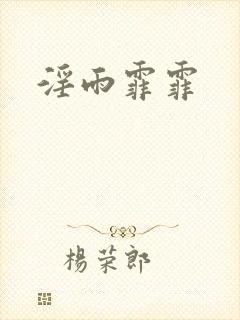 淫雨霏霏
楊荣郎